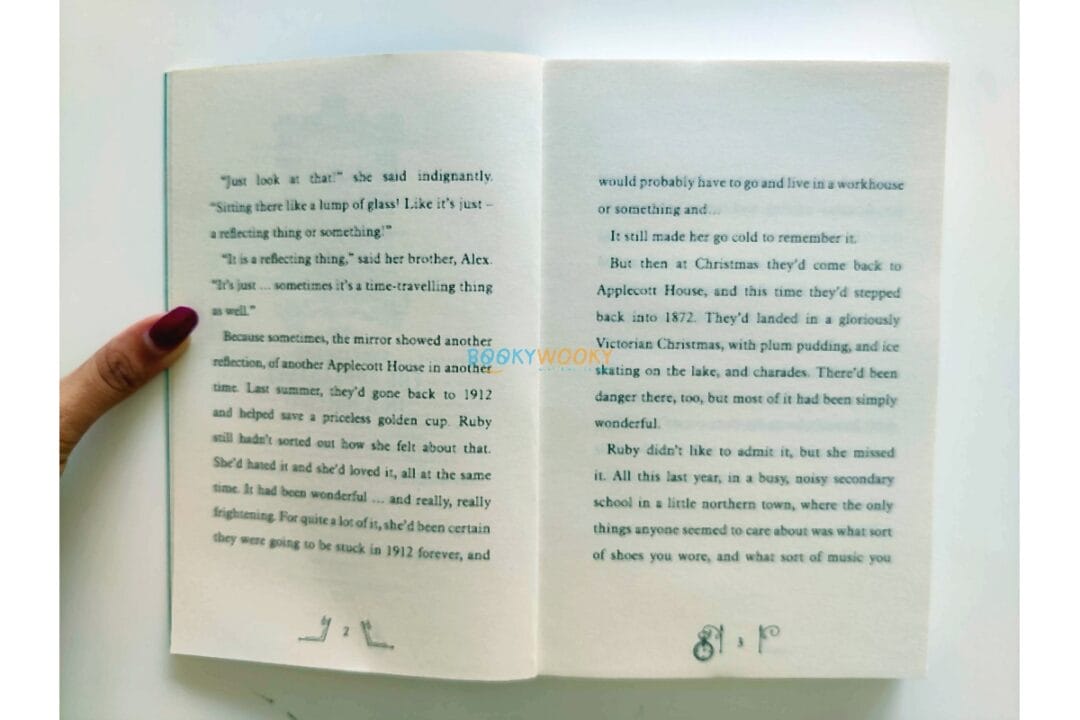 "Just look at that!" she said indignantly.
"Sitting there like a lump of glass! Like it's just –
a reflecting thing or something!"
"It is a reflecting thing," said her brother, Alex.
"It's just ... sometimes it's a time-travelling thing
as well."
Because sometimes, the mirror showed another
reflection, of another Applecott House in another
time. Last summer, they'd gone back to 1912
and helped save a priceless golden cup. Ruby
still hadn't sorted out how she felt about that.
She'd hated it and she'd loved it, all at the same
time. It had been wonderful ... and really, really
frightening. For quite a lot of it, she'd been certain
they were going to be stuck in 1912 forever, and
2
would probably have to go and live in a workhouse
or something and...
It still made her go cold to remember it.
But then at Christmas they'd come back to
Applecott House, and this time they'd stepped
back into 1872. They'd landed in a gloriously
Victorian Christmas, with plum pudding, and ice
skating on the lake, and charades. There'd been
danger there, too, but most of it had been simply
wonderful.
Ruby didn't like to admit it, but she missed
it. All this last year, in a busy, noisy secondary
school in a little northern town, where the only
things anyone seemed to care about was what sort
of shoes you wore, and what sort of music you
3
BOOKYWOOKY